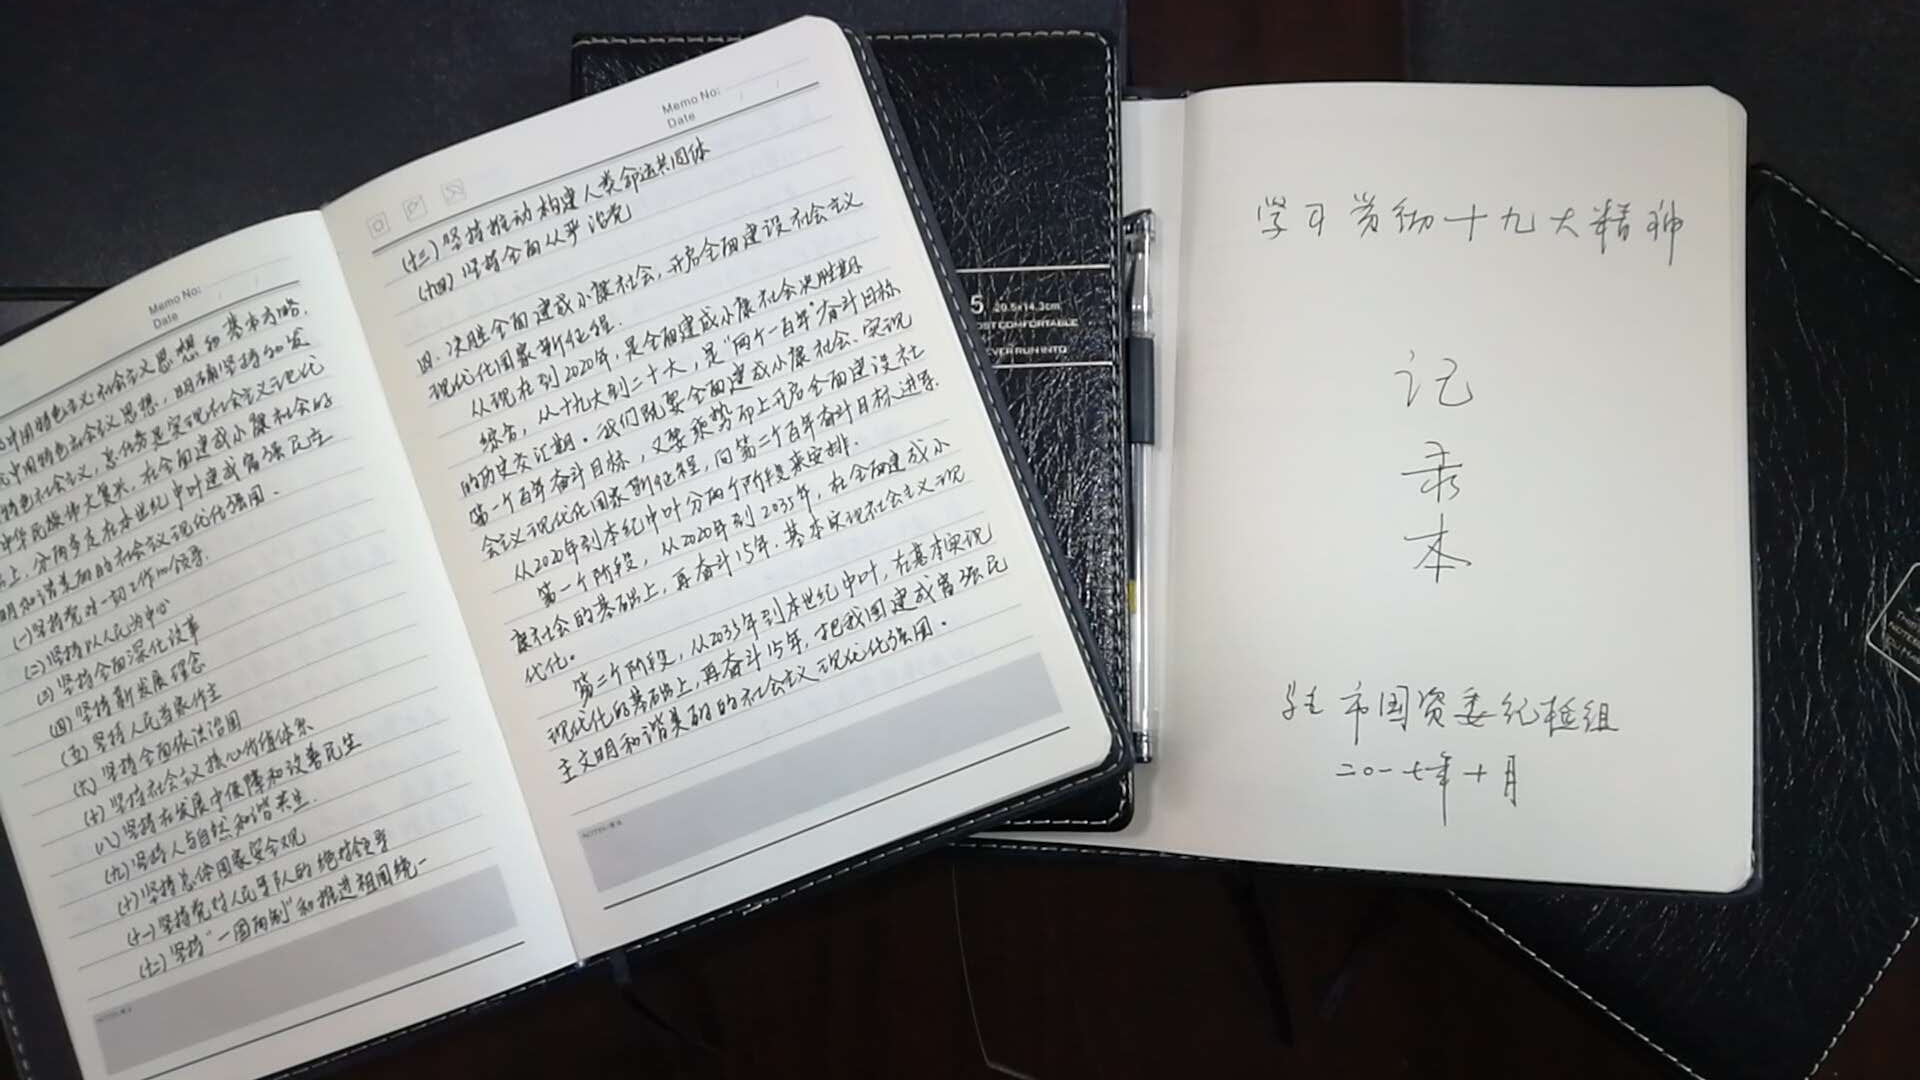 Memo No:
Date
中国特色主义社会主义思想和基本方略.
中国特色社会主义思想,明确坚持和发
特色社会主义,总任务是实现社会主义现代化
中华民族伟大复兴,在全面建成小康社会的
上,分两步走在本世纪中叶建成富强民主
明和谐美丽的社会主义现代化强国.
(一)坚持党对一切工作的领导.
(二)坚持以人民为中心
(三)坚持全面深化改革
(四)坚持新发展理念
(五)坚持人民当家作主
(六)坚持全面依法治国
(七)坚持社会主义核心价值体系
(八)坚持在发展中保障和改善民生
(九)坚持人与自然和谐共生.
(十)坚持总体国家安全观
(十一)坚持党对人民军队的绝对领导
(十二)坚持“一国两制”和推进祖国统一
Memo No:
Date
(十三)坚持推动构建人类命运共同体
(十四)坚持全面从严治党
四、决胜全面建成小康社会,开启全面建设社会主义
现代化国家新征程.
从现在到2020年,是全面建成小康社会决胜期
综合,从十九大到二十大,是“两个一百年”奋斗目标
的历史交汇期。我们既要全面建成小康社会、实现
第一个百年奋斗目标,又要乘势而上开启全面建设社
会主义现代化国家新征程,向第二个百年奋斗目标进军.
从2020年到本纪中叶分两个阶段来安排.
第一个阶段,从2020年到2035年,在全面建成小
康社会的基础上,再奋斗15年.基本实现社会主义现
代化。
第二个阶段,从2035年到本世纪中叶,在基本实现
现代化的基础上,再奋斗15年,把我国建成富强民
主文明和谐美丽的社会主义现代化强国.
5 20.5x14.3cm
学习贯彻十九大精神
记
录
本
驻市国资委纪检组
二〇一七年十月